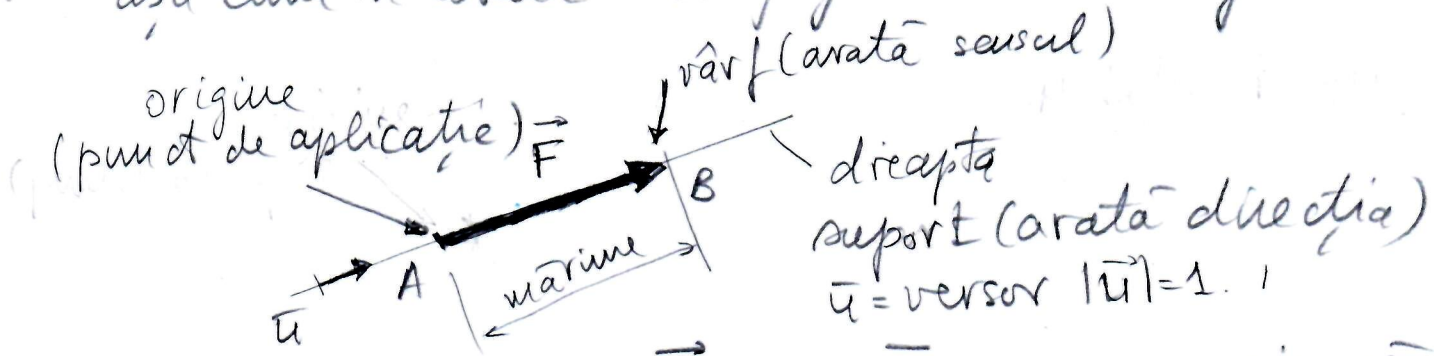 vârf (arată sensul)
origine
(punct de aplicație)
F⃗
B
dreapta
suport (arată direcția)
A
mărime
ū
ū = versor |ū|=1.